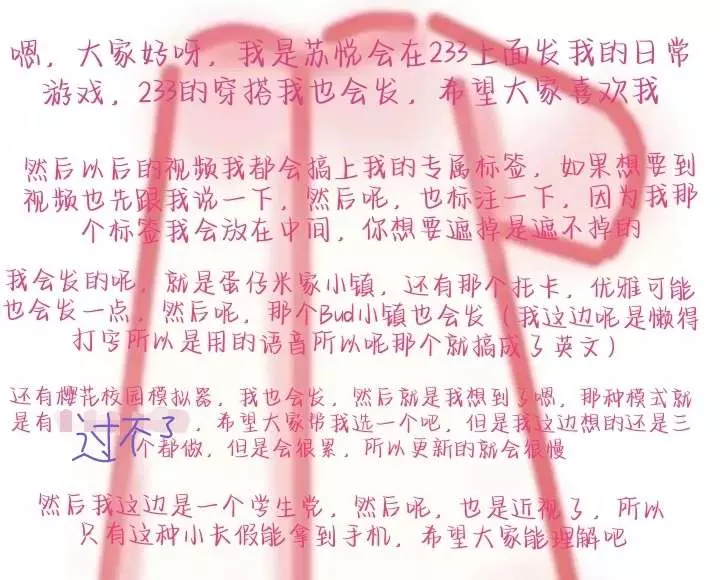 嗯，大家好呀，我是苏悦会在233上面发我的日常
游戏，233的穿搭我也会发，希望大家喜欢我
然后以后的视频我都会搞上我的专属标签，如果想要到
视频也先跟我说一下，然后呢，也标注一下，因为我那
个标签我会放在中间，你想要遮掉是遮不掉的
我会发的呢，就是蛋仔米家小镇，还有那个托卡，优雅可能
也会发一点，然后呢，那个Bud小镇也会发（我这边呢是懒得
打字所以是用的语音所以呢那个就搞成了英文）
还有樱花校园模拟器，我也会发，然后就是我想到了嗯，那种模式就
是有 ，希望大家帮我选一个吧，但是我这边想的还是三
过不了
个都做，但是会很累，所以更新的就会很慢
然后我这边是一个学生党，然后呢，也是近视了，所以
只有这种小长假能拿到手机，希望大家能理解吧